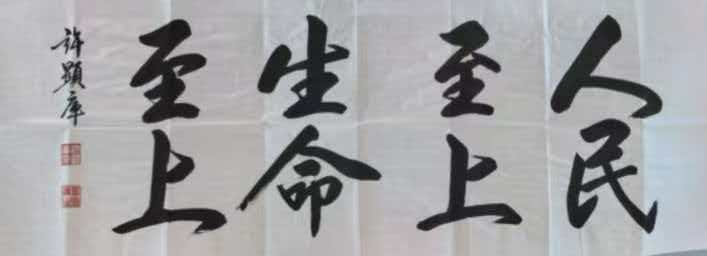 人民
至上
生命
至上
許顯库